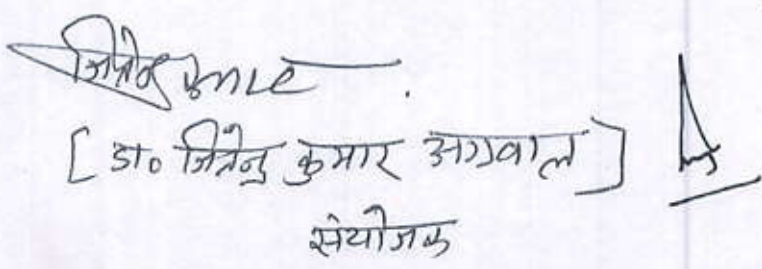 जितेन्द्र कुमार
[ डा० जितेन्द्र कुमार अग्रवाल ]
संयोजक